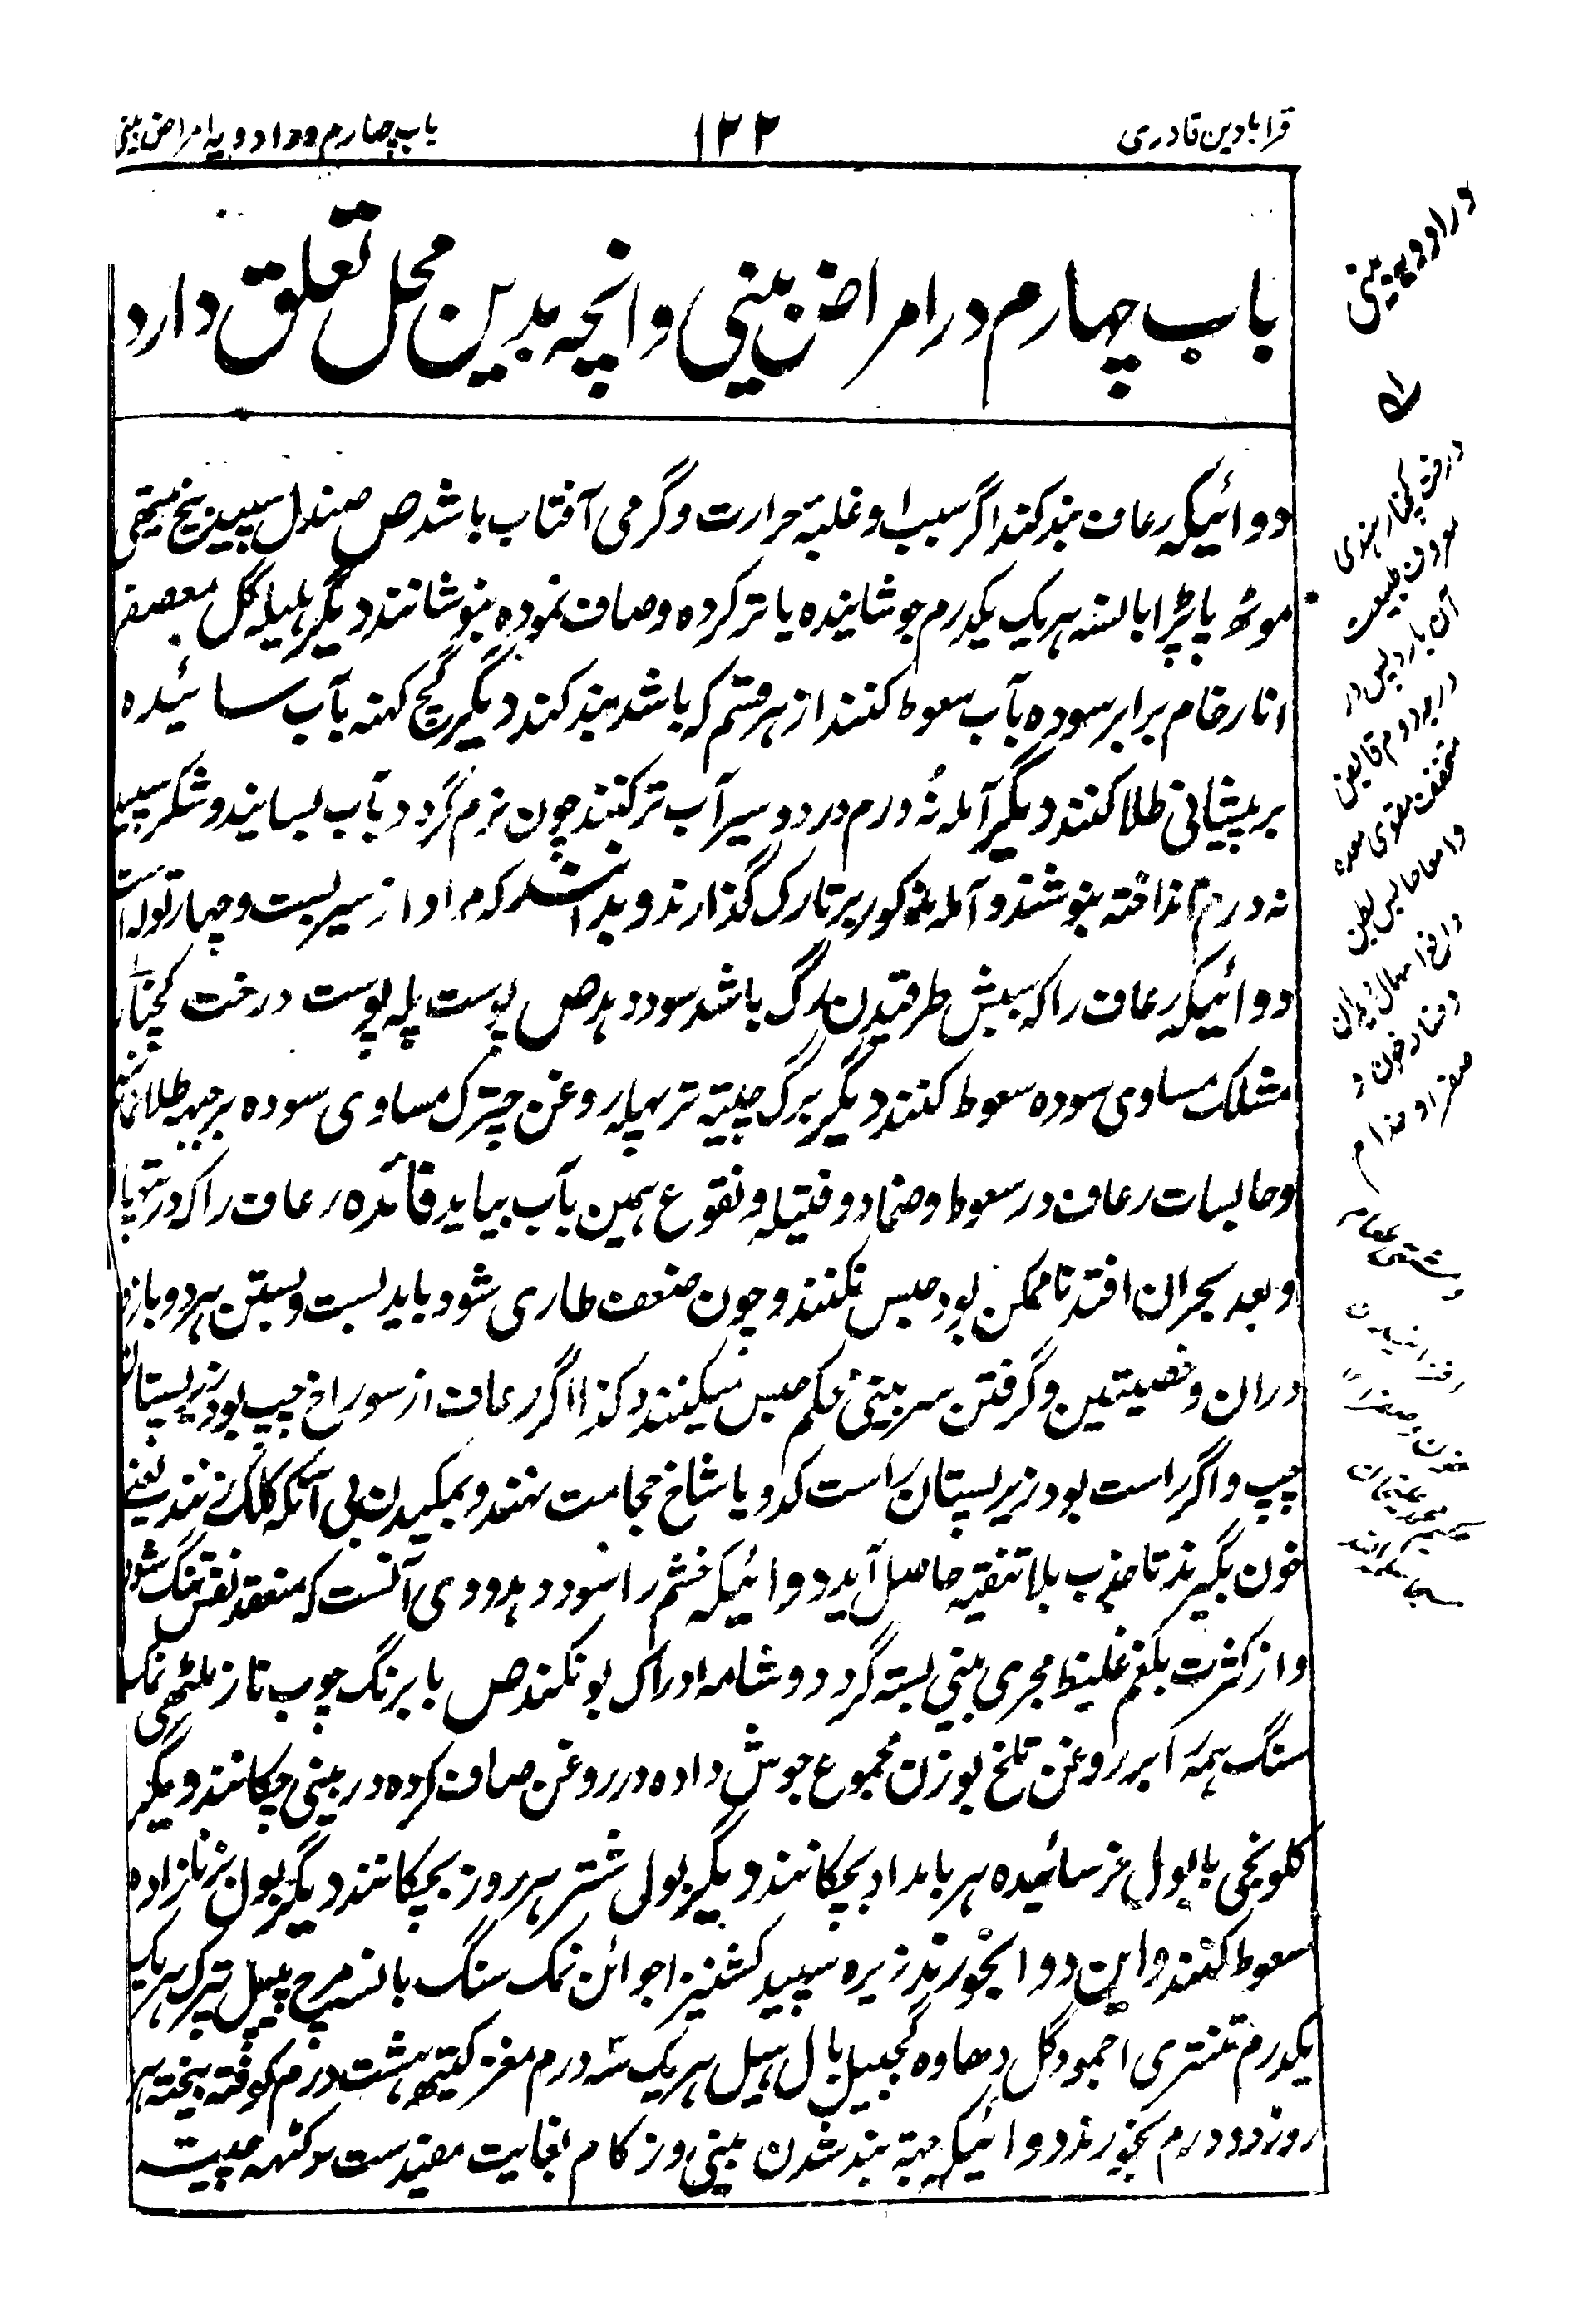 قرابادین قادری
۱۲۲
باب چهارم در ادویه امراض بینی
باب چهارم در امراض بینی و انچه بدین محل تعلق دارد
دوائیکه رعاف بند کند اگر سبب او غلبۂ حرارت و گرمی آفتاب باشد ص صندل سپید بیخ میتهی
موٹھ پاپڑا بالسنه هریک یکدرم جوشاینده یا تر کرده و صاف نموده بنوشانند دیگر هلیله گل معصفر
انار خام برابر سوده بآب سعوط کنند از هر قسم که باشد بند کند دیگر گچ کهنه بآب سائیده
بر پیشانی طلا کنند دیگر آمله نُه درم در دو سیر آب تر کنند چون نرم گردد بآب بسایند و شکر سپید
نه درم انداخته بنوشند و آمله مذکور بر تارک گذارند و بدانند که مراد از سیر بست و چهار توله است
دوائیکه رعاف را که سببش طرقیدن رگ باشد سود دهد ص پوست پله پوست درخت کچنار
مشلک مساوی سوده سعوط کنند دیگر برگ چیته تر بهپله روغن چترک مساوی سوده بر جبهه طلا نمایند
و حابسات رعاف در سعوط و ضماد و فتیله و نقوع همین بآب بیاید فائده رعاف را که در تپ یا
و بعد بحران افتد تا ممکن بود حبس نکنند و چون ضعف طاری شود باید بست و بستن هر دو بازو
و ران و خصیتین و گرفتن سر بینی محکم حبس میکنند و کذا اگر رعاف از سوراخ چپ بود زیر پستان
چپ و اگر راست بود زیر پستان راست کدو یا شاخ حجامت نهند و بمکیدن بی آنکه کلک زنند یعنے
خون بگیرند تا جذب بلا تنقیه حاصل آید دوائیکه خشم را سود دهد و وی آنست که منفذ نفس تنگ شود
و از کثرت بلغم غلیظ مجری بینی بسته گردد و شامه ادراک بو نکند ص با برنگ چوب تاز ملٹهی نمک
سنگ همه برابر روغن تلخ بوزن مجموع جوش داده در روغن صاف کرده در بینی چکانند دیگر
کلونجی با بول خر سائیده هر بامداد بچکانند دیگر بول شتر هر روز بچکانند دیگر بول بز نازاده
سعوط کنند و این دوا بخورند زیره سپید کشنیز اجوائن نمک سنگ بالسنه مرچ پیپل تیرک هر یک
یکدرم تنتری اجمود گل دهاوه گجپیپل بال هیل هر یک سه درم مغز کیتهه هشت درم کوفته بیخته هر
روز دو درم بخورند دوائیکه جهة بند شدن بینی و زکام بغایت مفیدست سوکنهه چیته
در ادویه بینی
درخت کچنار هندی
معروف طبیعت
آن بارد یابس در
درجه دوم قابض
مجفف مقوی معده
و امعا حابس بطن
دافع اسهال و دیدان
و فساد خون و
صفرا و جذام